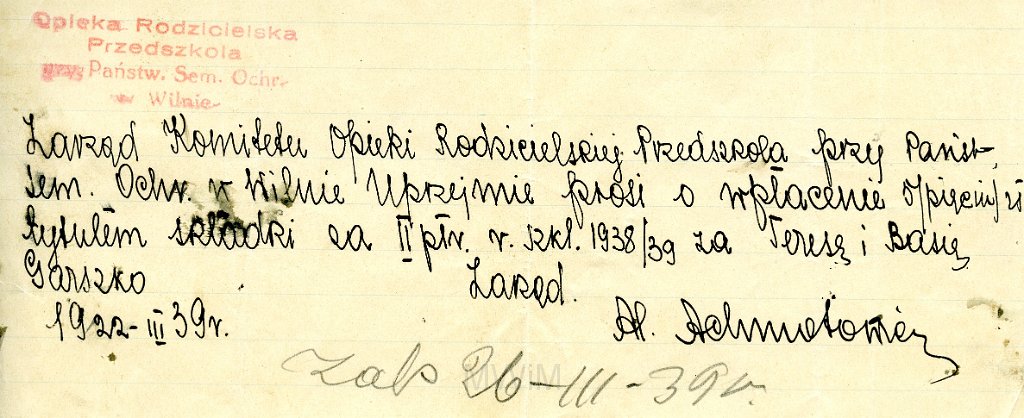 Opieka Rodzicielska
Przedszkola
przy Państw. Sem. Ochr.
w Wilnie
Zarząd Komitetu Opieki Rodzicielskiej Przedszkola przy Państ.
Sem. Ochr. w Wilnie Uprzejmie prosi o wpłacenie 5/pięciu/ zł
tytułem składki za II płr. r. szkl. 1938/39 za Teresę i Basię
Garszko Zarząd.
1922-III 39r. Al. Achmatowicz
Zapł 26-III-39r.
MWiM